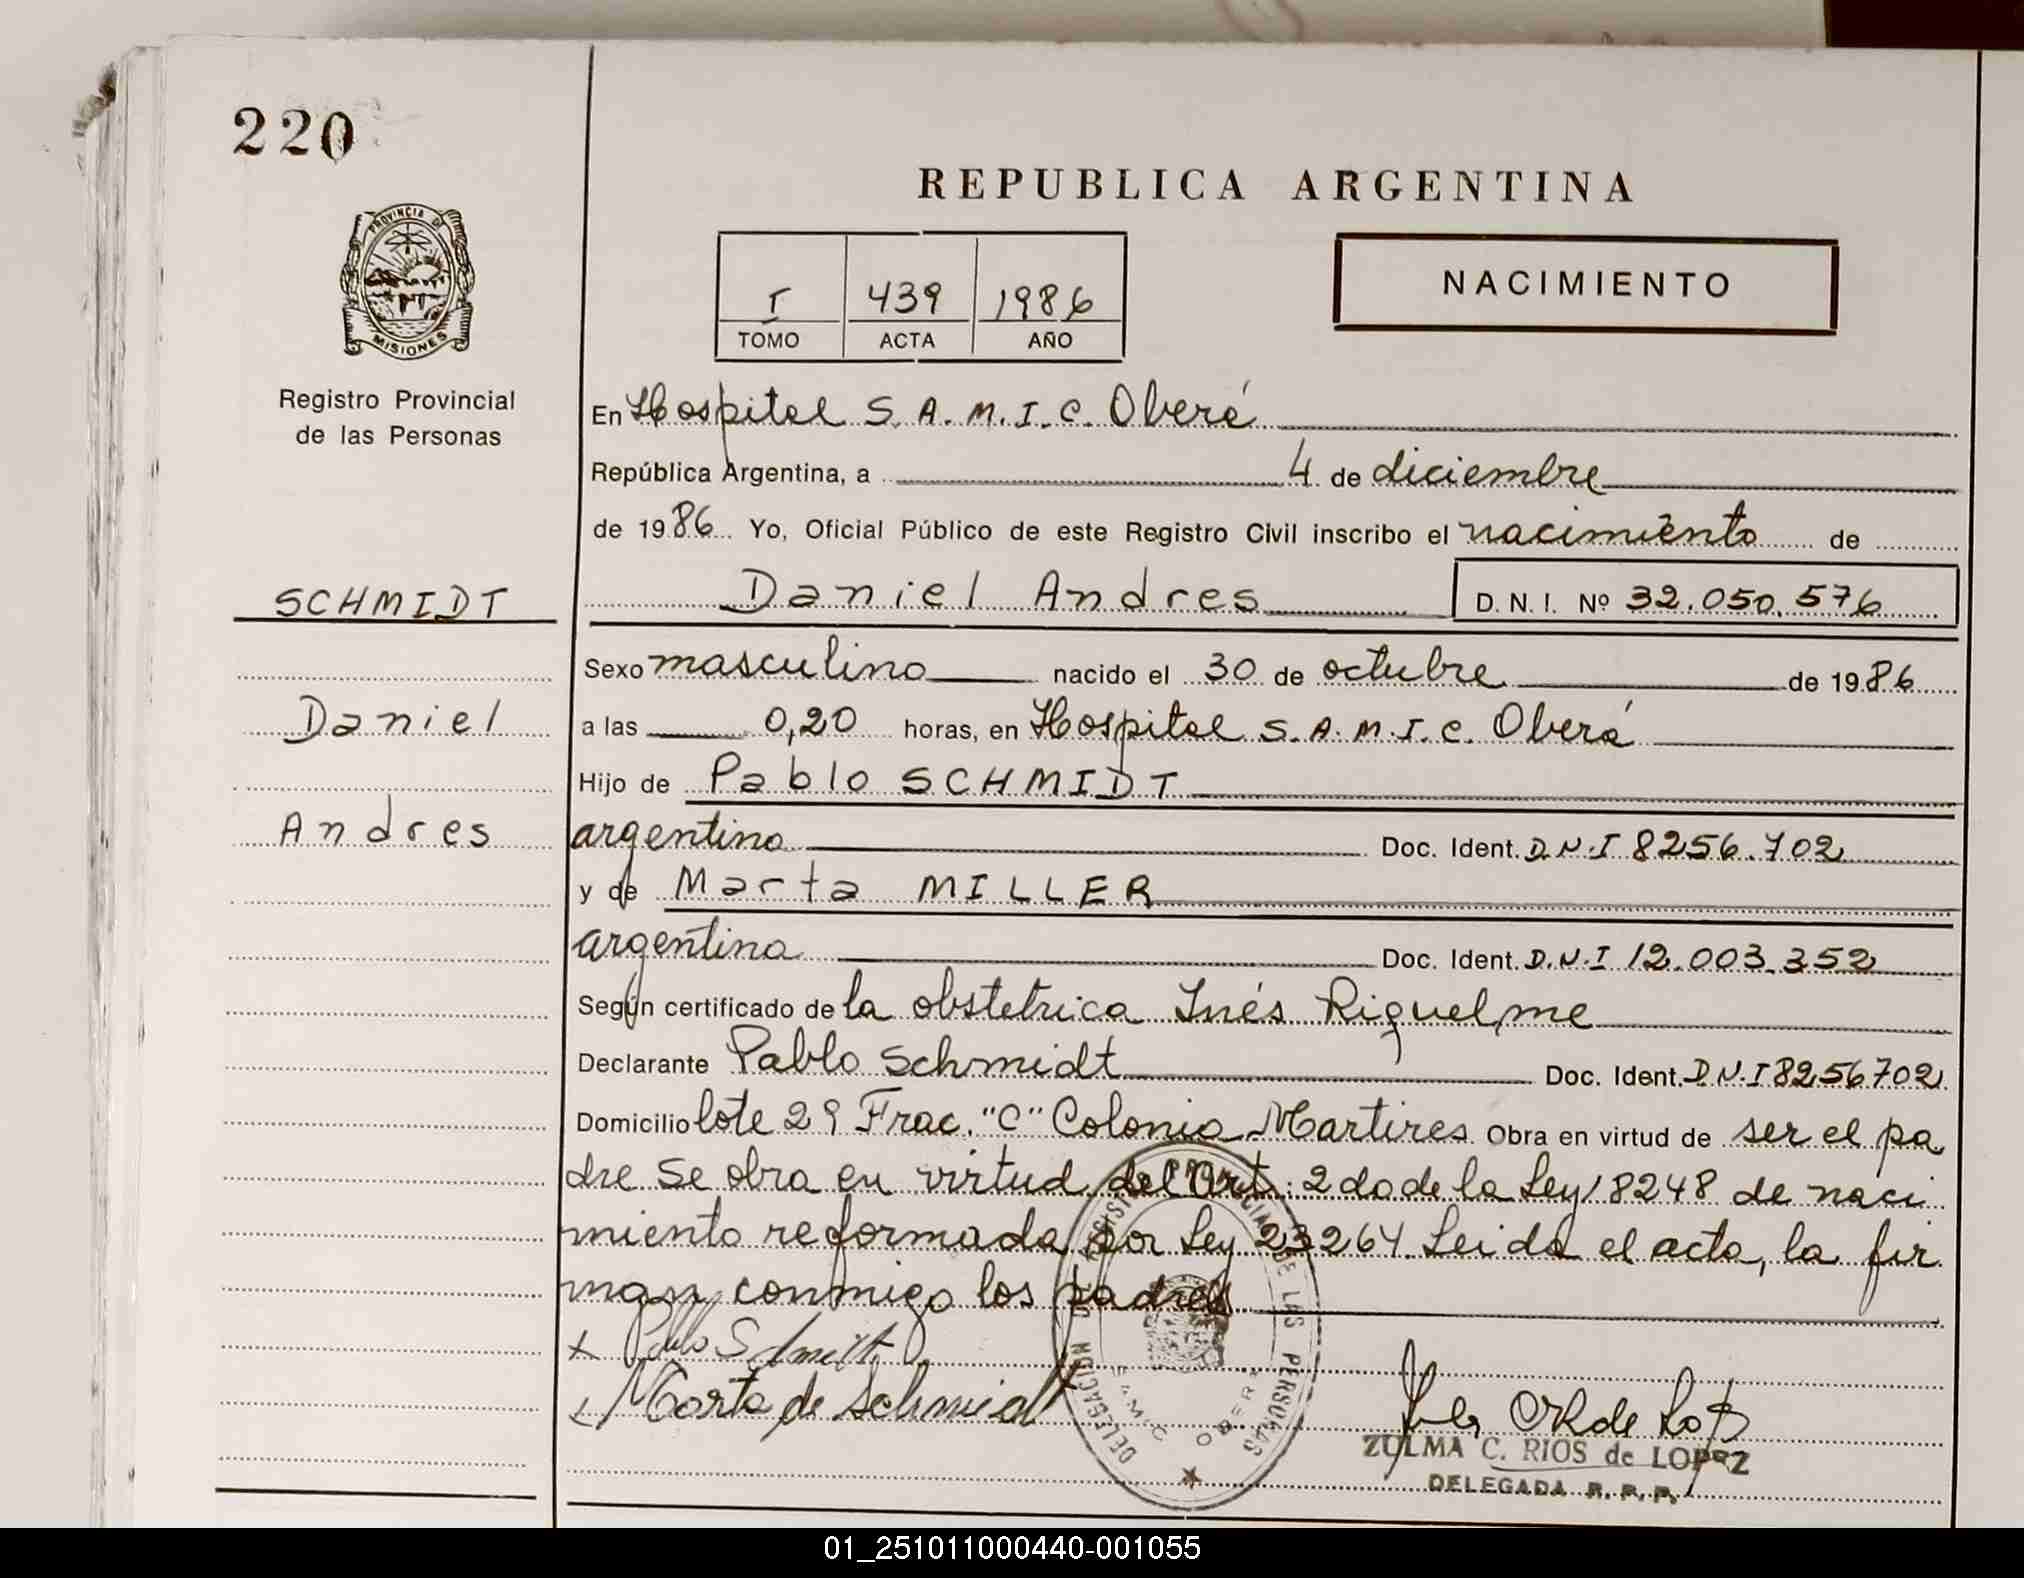 220
REPUBLICA ARGENTINA
PROVINCIA DE
MISIONES
I 439 1986
TOMO ACTA AÑO
NACIMIENTO
Registro Provincial
de las Personas
En Hospital S.A.M.I.C. Oberá
República Argentina, a 4 de diciembre
de 1986 Yo, Oficial Público de este Registro Civil inscribo el nacimiento de
SCHMIDT
Daniel Andres D.N.I. Nº 32.050.576
Sexo masculino nacido el 30 de octubre de 1986
Daniel
a las 0,20 horas, en Hospital S.A.M.I.C. Oberá
Hijo de Pablo SCHMIDT
Andres
argentino Doc. Ident. D.N.I 8256.702
y de Marta MILLER
argentina Doc. Ident. D.N.I 12.003.352
Según certificado de la obstetrica Inés Riquelme
Declarante Pablo Schmidt Doc. Ident. D.N.I 8256702
Domicilio lote 29 Frac. "C" Colonia Martires Obra en virtud de ser el pa
dre Se obra en virtud del Art. 2do de la Ley 18248 de naci
miento reformada por Ley 23264 Leida el acta, la fir
man conmigo los padres
x Pablo Schmidt
x Marta de Schmidt
REGISTRO PROVINCIAL DE LAS PERSONAS
DELEGACION
SAMIC OBERA
ZULMA C. RIOS de LOPEZ
DELEGADA R. P. P.
01_251011000440-001055